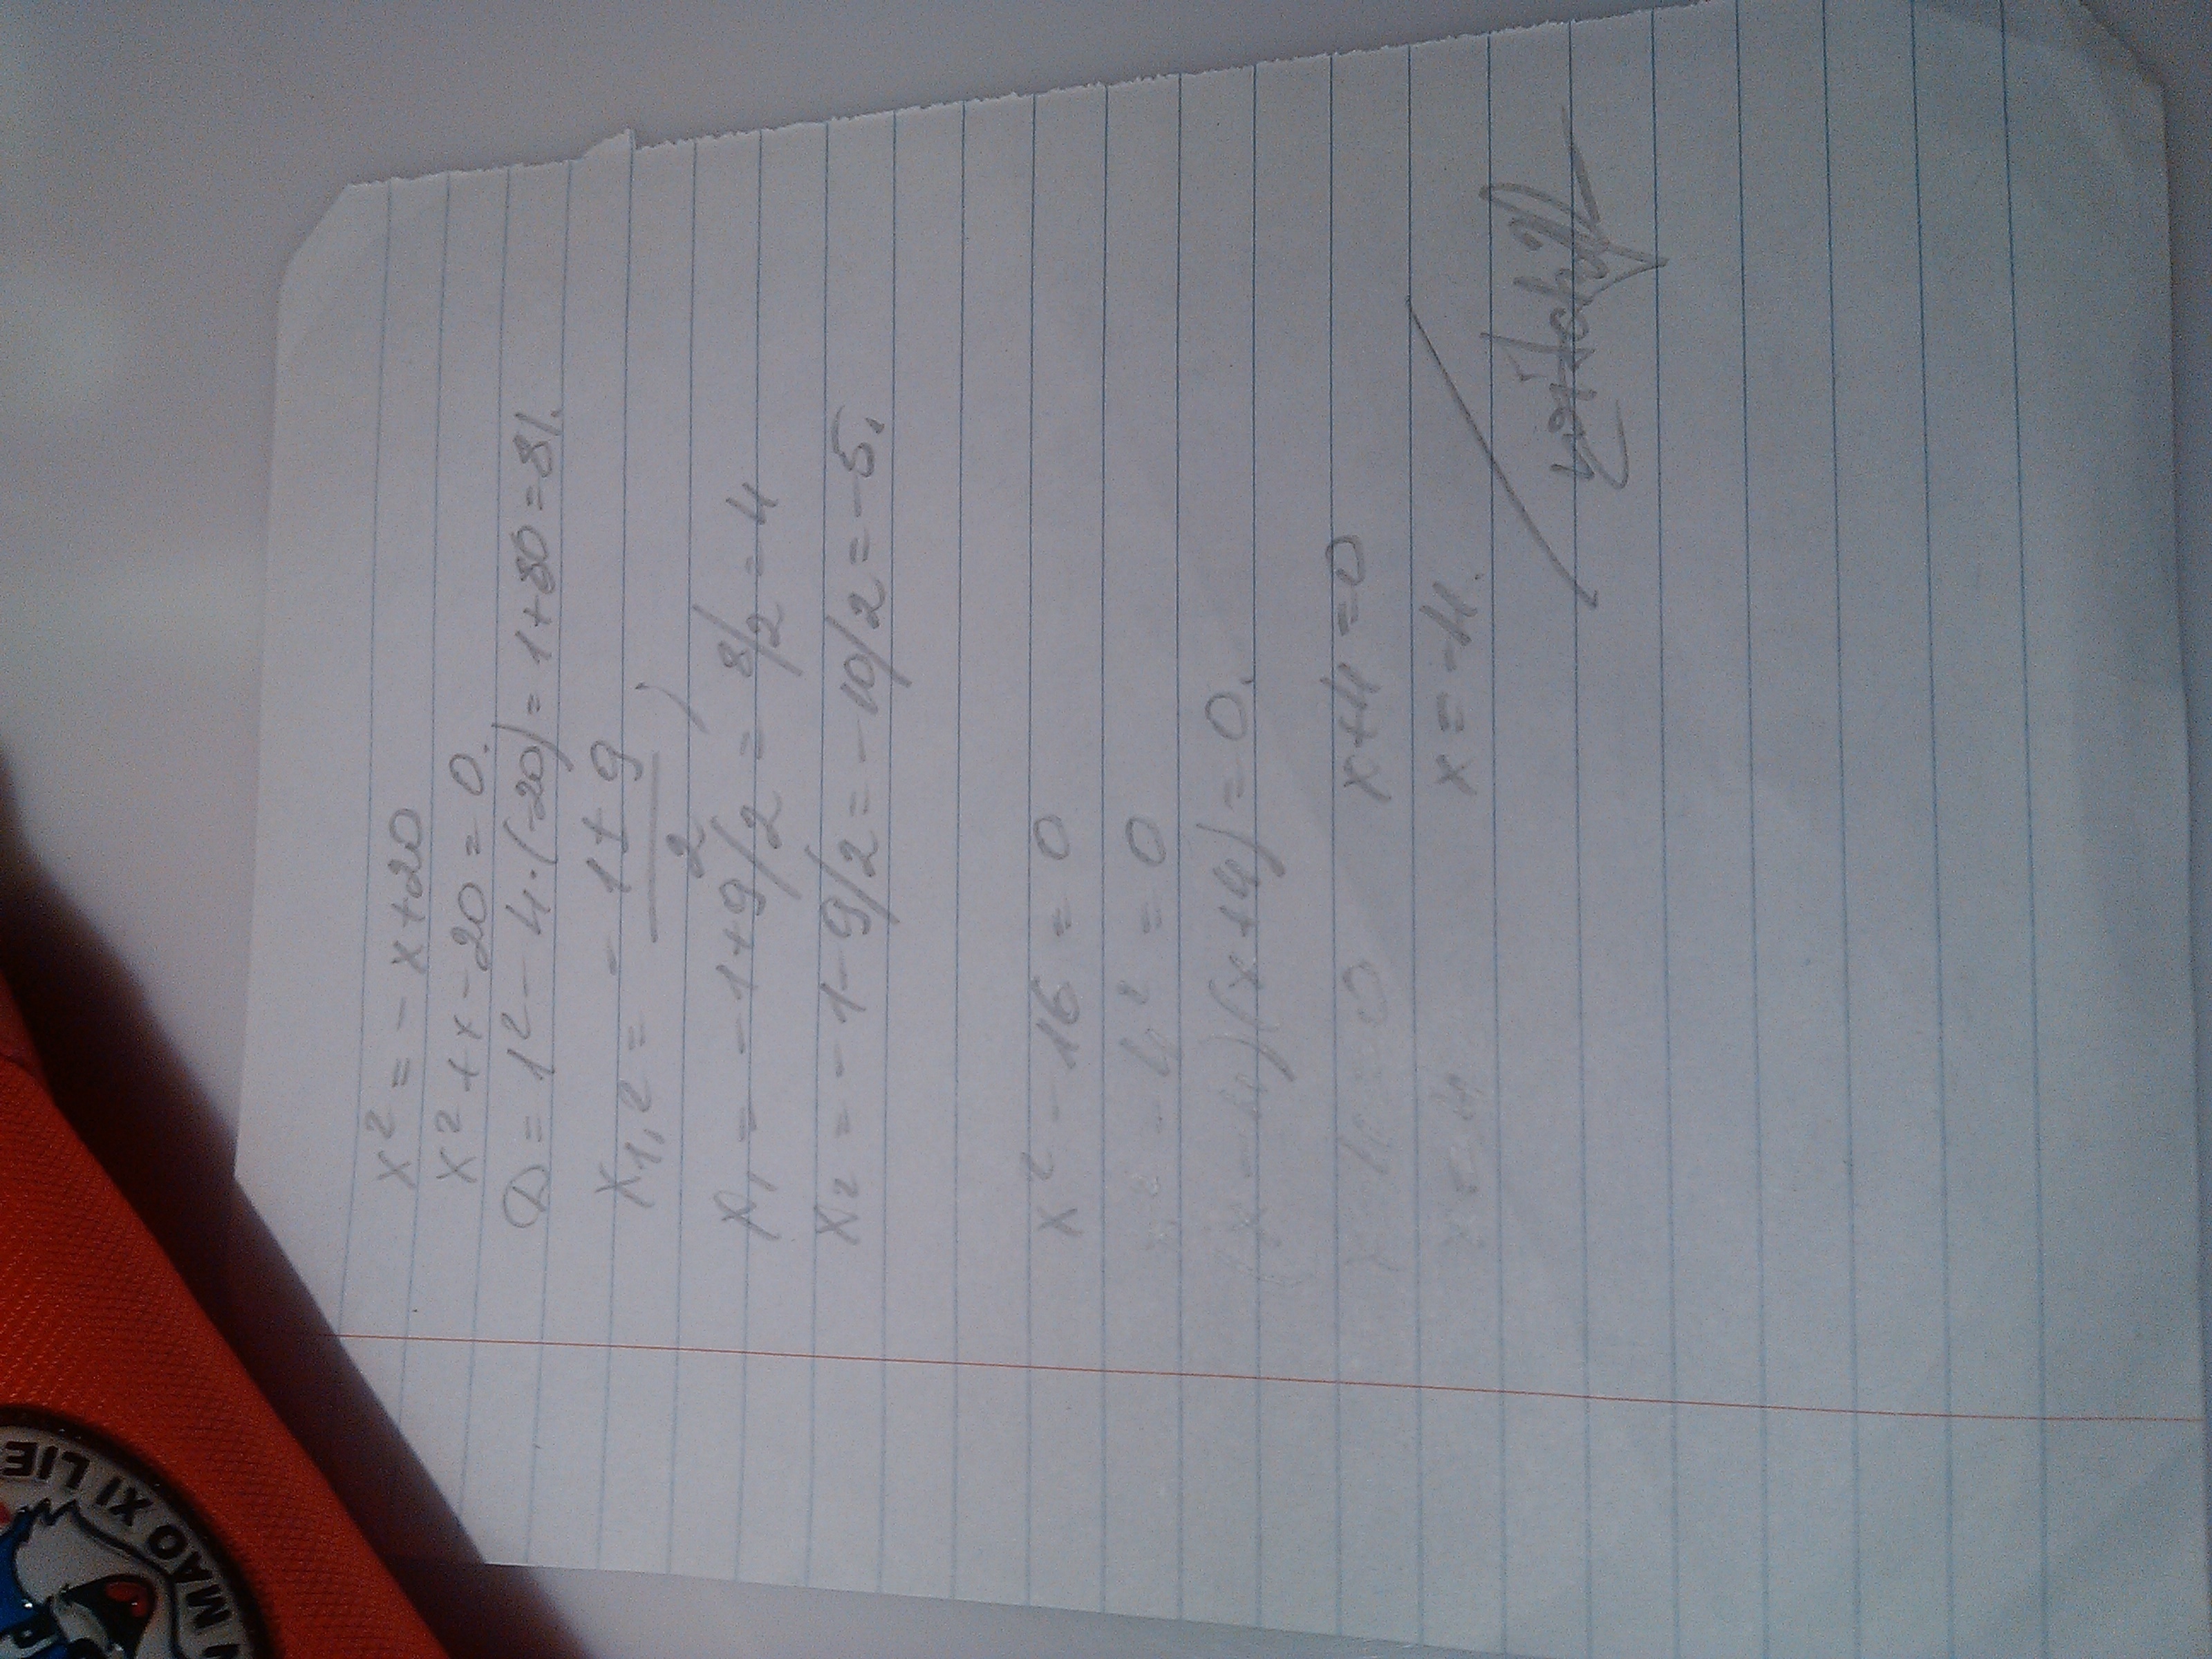 x² = - x + 20
x² + x - 20 = 0.
D = 1² - 4·(-20) = 1 + 80 = 81.
x1,2 = - 1 ± 9 / 2 ;
x1 = - 1 + 9/2 = 8/2 = 4
x2 = - 1 - 9/2 = - 10/2 = - 5.
x² - 16 = 0
x² - 4² = 0
(x - 4)(x + 4) = 0.
x - 4 = 0 x + 4 = 0
x = 4 x = - 4.
MAO XI LIE